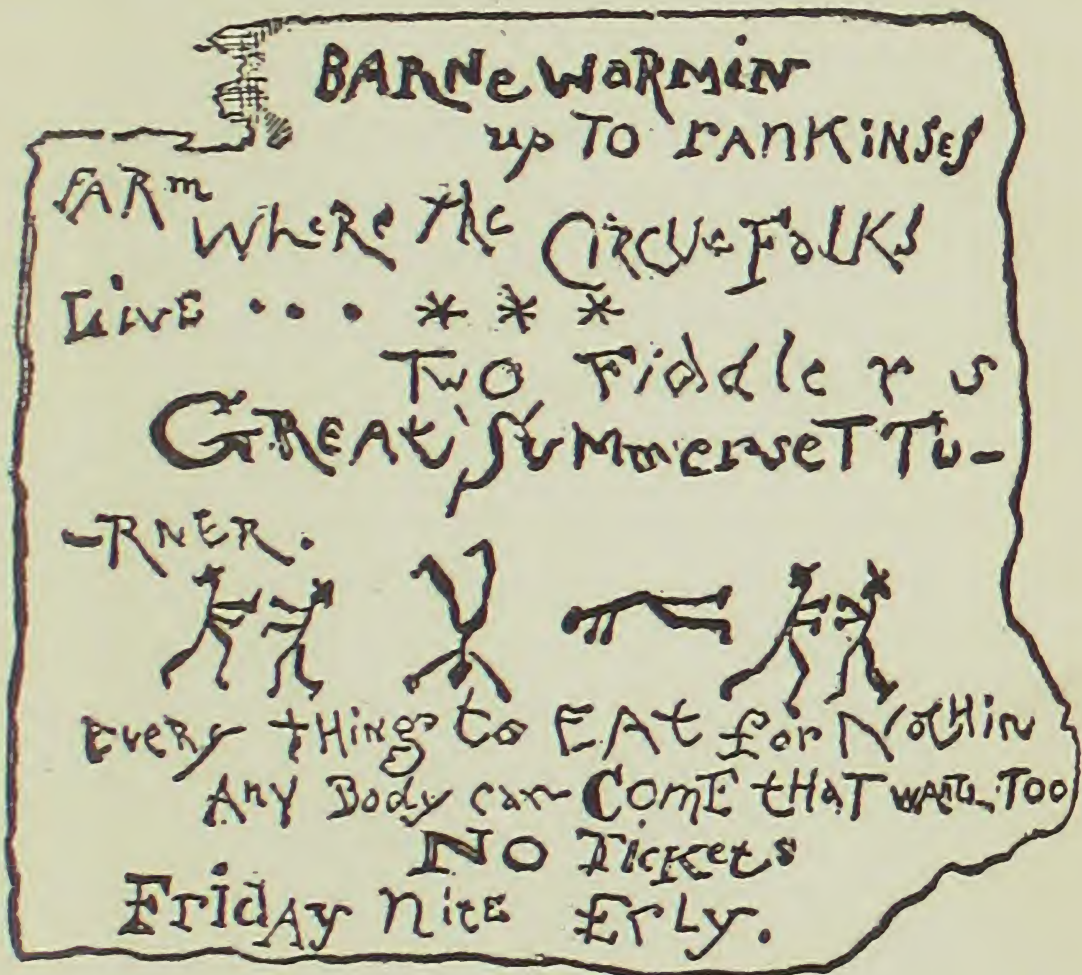 BARNe WaRMiN
up To rANKiNSes
fARm Where the CiRCUs FolKs
LivE . . . * * *
Two Fiddlers
GREAt SuMmerseT Tu-
-RNER.
EveRy tHing to EAt for NotHiN
ANY Body can COmE tHaT wants Too
NO Tickets
FridAy NitE ErLy.